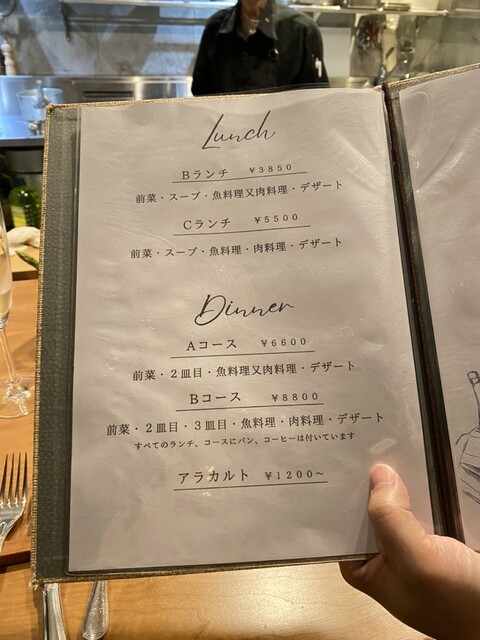 Lunch
Bランチ ¥3850
前菜・スープ・魚料理又肉料理・デザート
Cランチ ¥5500
前菜・スープ・魚料理・肉料理・デザート
Dinner
Aコース ¥6600
前菜・2皿目・魚料理又肉料理・デザート
Bコース ¥8800
前菜・2皿目・3皿目・魚料理・肉料理・デザート
すべてのランチ、コースにパン、コーヒーは付いています
アラカルト ¥1200〜